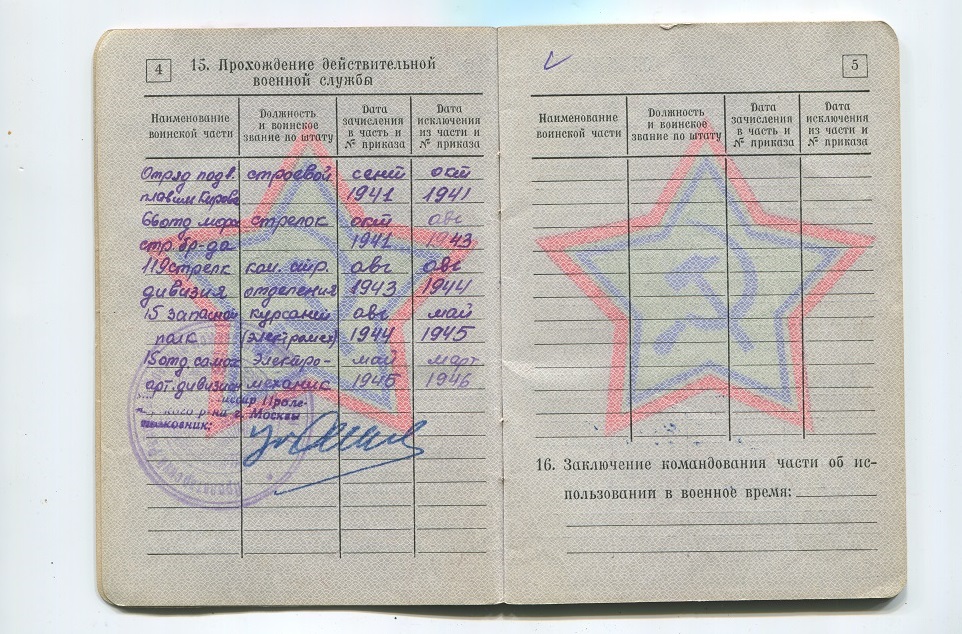 4
15. Прохождение действительной
военной службы
Наименование воинской части
Должность и воинское звание по штату
Дата зачисления в часть и № приказа
Дата исключения из части и № приказа
Отряд подв. строевой сент окт
плавсил Кирова 1941 1941
66 отд морс стрелок окт авг
стр. бр-да 1941 1943
119 стрелк ком. стр. авг авг
дивизия отделения 1943 1944
15 запасной курсант авг май
полк (электромех) 1944 1945
15 отд. самох электро- май март
арт. дивизион механик 1945 1946
Проле-
р-на г. Москвы
полковник:
5
Наименование воинской части
Должность и воинское звание по штату
Дата зачисления в часть и № приказа
Дата исключения из части и № приказа
16. Заключение командования части об ис-
пользовании в военное время: